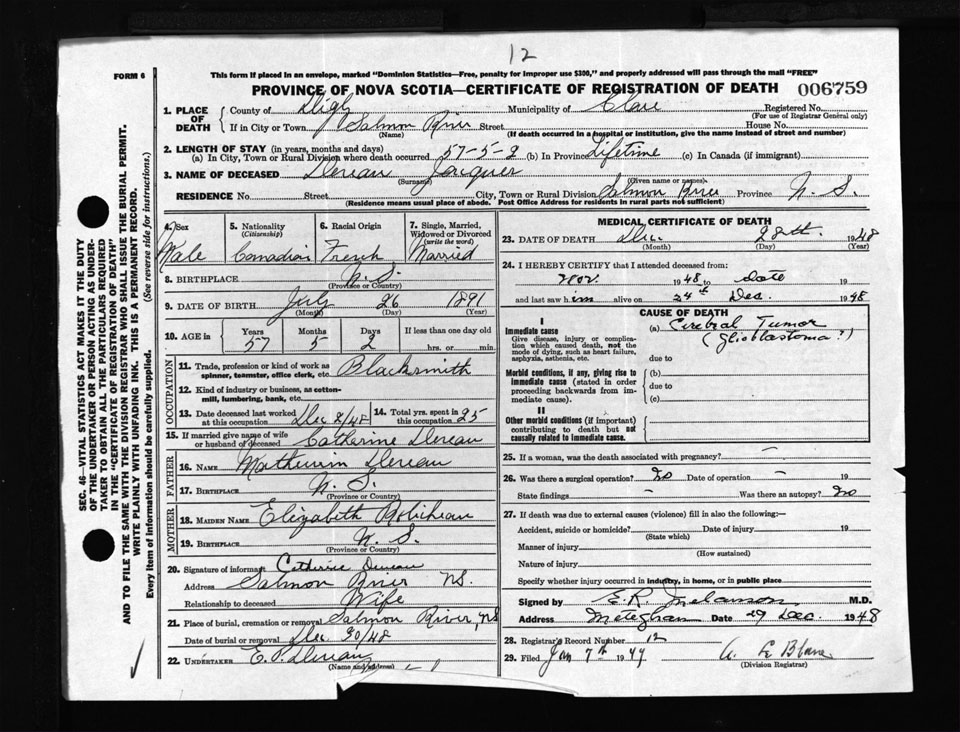 12
FORM 6
This form if placed in an envelope, marked "Dominion Statistics—Free, penalty for improper use $300," and properly addressed will pass through the mail "FREE"
PROVINCE OF NOVA SCOTIA—CERTIFICATE OF REGISTRATION OF DEATH 006759
1. PLACE OF DEATH
County of Digby Municipality of Clare Registered No.
(For use of Registrar General only)
If in City or Town Salmon River Street House No.
(Name) (If death occurred in a hospital or institution, give the name instead of street and number)
2. LENGTH OF STAY (in years, months and days)
(a) In City, Town or Rural Division where death occurred 57-5-2 (b) In Province Lifetime (c) In Canada (if immigrant)
3. NAME OF DECEASED Deveau Jacques
(Surname) (Given name or names)
RESIDENCE No. Street City, Town or Rural Division Salmon River Province N.S.
(Residence means usual place of abode. Post Office Address for residents in rural parts not sufficient)
4. Sex Male
5. Nationality (Citizenship) Canadian
6. Racial Origin French
7. Single, Married, Widowed or Divorced (write the word) Married
8. BIRTHPLACE N.S.
(Province or Country)
9. DATE OF BIRTH July 26 1891
(Month) (Day) (Year)
10. AGE in Years Months Days If less than one day old
57 5 2 hrs. or min.
OCCUPATION
11. Trade, profession or kind of work as spinner, teamster, office clerk, etc. Blacksmith
12. Kind of industry or business, as cotton-mill, lumbering, bank, etc.
13. Date deceased last worked at this occupation Dec 8/48
14. Total yrs. spent in this occupation 25
15. If married give name of wife or husband of deceased Catherine Deveau
FATHER
16. NAME Mathurin Deveau
17. BIRTHPLACE N.S.
(Province or Country)
MOTHER
18. MAIDEN NAME Elizabeth Robicheau
19. BIRTHPLACE N.S.
(Province or Country)
20. Signature of informant Catherine Deveau
Address Salmon River NS.
Relationship to deceased Wife
21. Place of burial, cremation or removal Salmon River, NS
Date of burial or removal Dec 30/48
22. UNDERTAKER E. P. Deveau
(Name and address)
MEDICAL CERTIFICATE OF DEATH
23. DATE OF DEATH Dec. 28th. 1948
(Month) (Day) (Year)
24. I HEREBY CERTIFY that I attended deceased from:
Nov. 1948 to date 19
and last saw him alive on 24th Dec. 1948
CAUSE OF DEATH
I
Immediate cause
Give disease, injury or complication which caused death, not the mode of dying, such as heart failure, asphyxia, asthenia, etc.
(a) Cerebral Tumor
(Glioblastoma?)
due to
Morbid conditions, if any, giving rise to immediate cause (stated in order proceeding backwards from immediate cause).
(b)
due to
(c)
II
Other morbid conditions (if important) contributing to death but not causally related to immediate cause.
25. If a woman, was the death associated with pregnancy? —
26. Was there a surgical operation? No Date of operation — 19
State findings — Was there an autopsy? No
27. If death was due to external causes (violence) fill in also the following:—
Accident, suicide or homicide? Date of injury 19
(State which)
Manner of injury
(How sustained)
Nature of injury
Specify whether injury occurred in industry, in home, or in public place
Signed by E.R. Melanson M.D.
Address Meteghan Date 29 Dec. 1948
28. Registrar's Record Number 12
29. Filed Jan 7th 1949
(Division Registrar)
SEC. 46—VITAL STATISTICS ACT MAKES IT THE DUTY
OF THE UNDERTAKER OR PERSON ACTING AS UNDER-
TAKER TO OBTAIN ALL THE PARTICULARS REQUIRED
IN THE "CERTIFICATE OF REGISTRATION OF DEATH"
AND TO FILE THE SAME WITH THE DIVISION REGISTRAR WHO SHALL ISSUE THE BURIAL PERMIT.
WRITE PLAINLY WITH UNFADING INK. THIS IS A PERMANENT RECORD.
Every item of information should be carefully supplied. (See reverse side for instructions.)